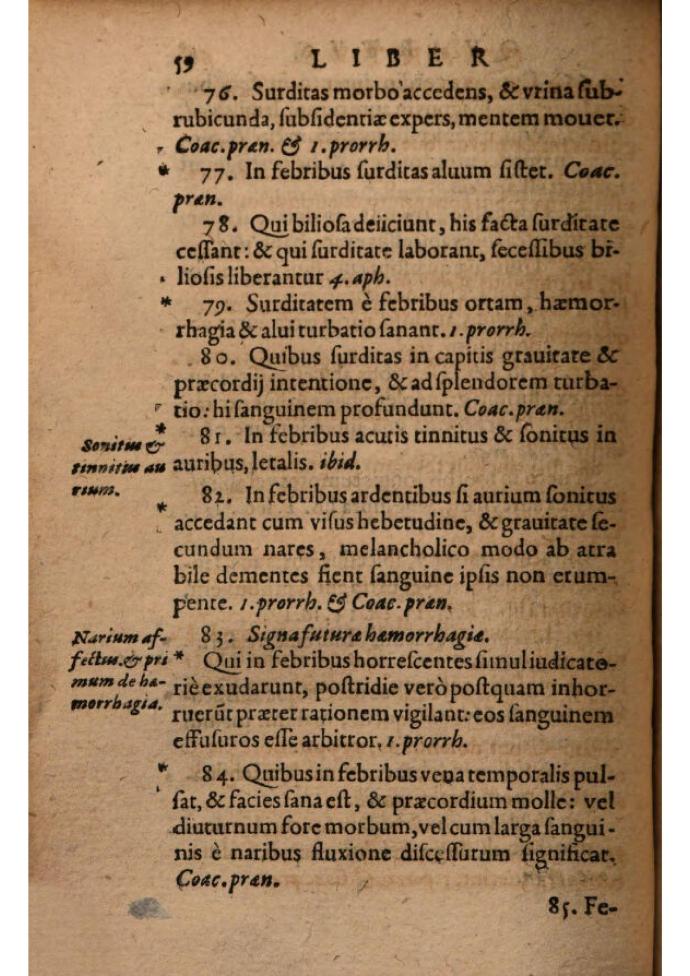 59 LIBER
76. Surditas morbo accedens, & vrina ſub-
rubicunda, ſubſidentiæ expers, mentem mouet.
Coac. præn. & 1. prorrh.
* 77. In febribus ſurditas aluum ſiſtet. Coac.
præn.
78. Qui bilioſa deiiciunt, his facta ſurditate
ceſſant: & qui ſurditate laborant, ſeceſſibus bi-
lioſis liberantur 4. aph.
* 79. Surditatem è febribus ortam, hæmor-
rhagia & alui turbatio ſanant. 1. prorrh.
80. Quibus ſurditas in capitis grauitate &
præcordij intentione, & ad ſplendorem turba-
tio: hi ſanguinem profundunt. Coac. præn.
Sonitus &
tinnitus au
rium.
* 81. In febribus acutis tinnitus & ſonitus in
auribus, letalis. ibid.
* 82. In febribus ardentibus ſi aurium ſonitus
accedant cum viſus hebetudine, & grauitate ſe-
cundum nares, melancholico modo ab atra
bile dementes fient ſanguine ipſis non erum-
pente. 1. prorrh. & Coac. præn.
Narium af-
fectus. & pri
mum de hæ-
morrhagia.
83. Signa futuræ hæmorrhagiæ.
* Qui in febribus horreſcentes ſimul iudicato-
riè exudarunt, poſtridie verò poſtquam inhor-
ruerūt præter rationem vigilant: eos ſanguinem
effuſuros eſſe arbitror. 1. prorrh.
* 84. Quibus in febribus vena temporalis pul-
ſat, & facies ſana eſt, & præcordium molle: vel
diuturnum fore morbum, vel cum larga ſangui-
nis è naribus fluxione diſceſſurum ſignificat.
Coac. præn.
85. Fe-